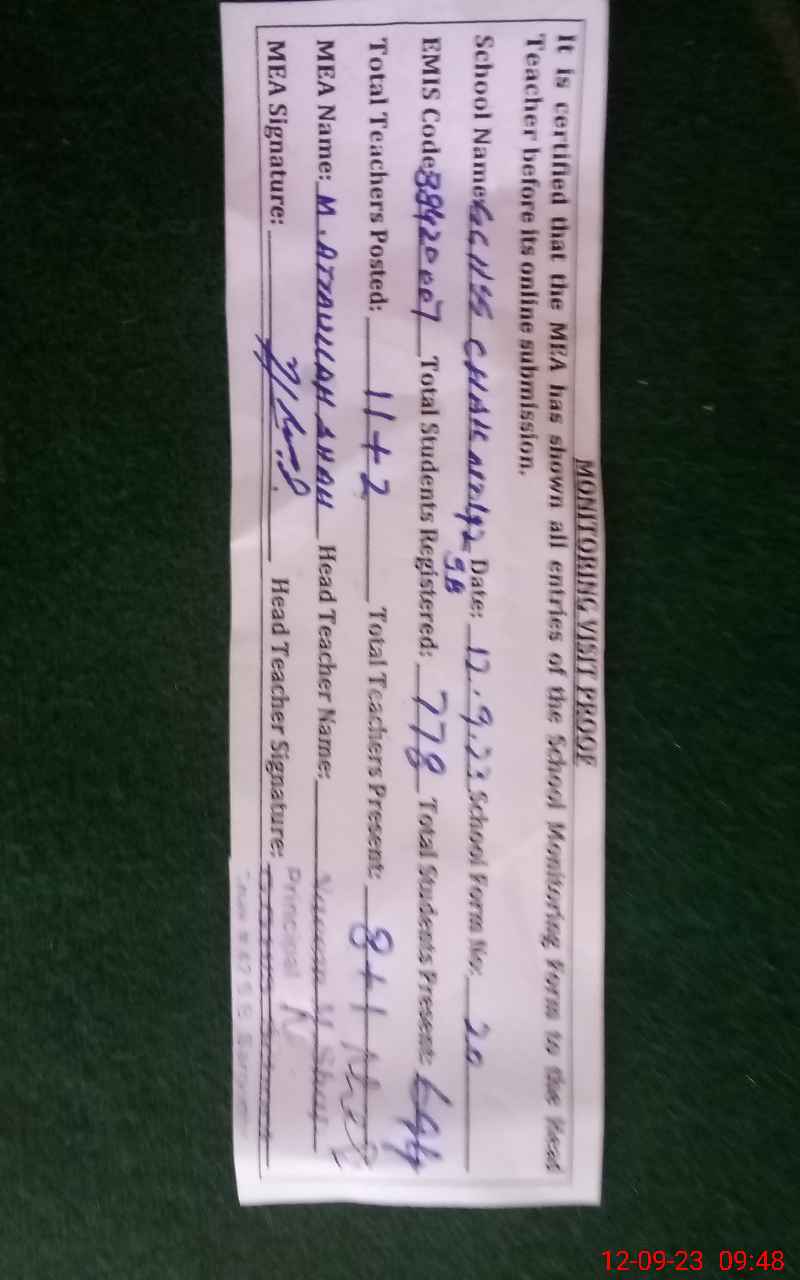 MONITORING VISIT PROOF
It is certified that the MEA has shown all entries of the School Monitoring Form to the Head
Teacher before its online submission.
School Name: Date: 12.9.23 School Form No: 20
EMIS Code: Total Students Registered: 778 Total Students Present:
Total Teachers Posted: 11+2 Total Teachers Present: 8+1
MEA Name: M. ATTAULLAH SHAH Head Teacher Name:
MEA Signature: Head Teacher Signature:
Principal
12-09-23 09:48